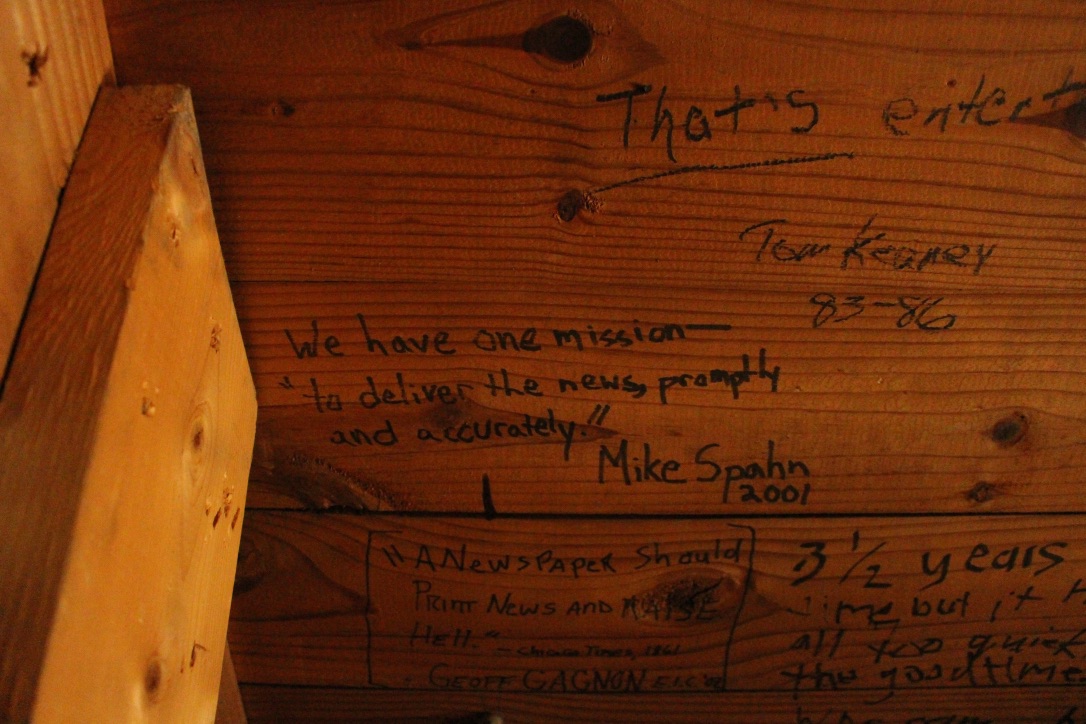 That's entert
Tom Keaney
83-86
We have one mission—
"to deliver the news, promptly
and accurately."
Mike Spahn
2001
"A Newspaper Should
Print News and RAISE
Hell."
- Chicago Times, 1861
- GEOFF GAGNON E.I.C '02
3 1/2 years
time but it
all too quick
the good time